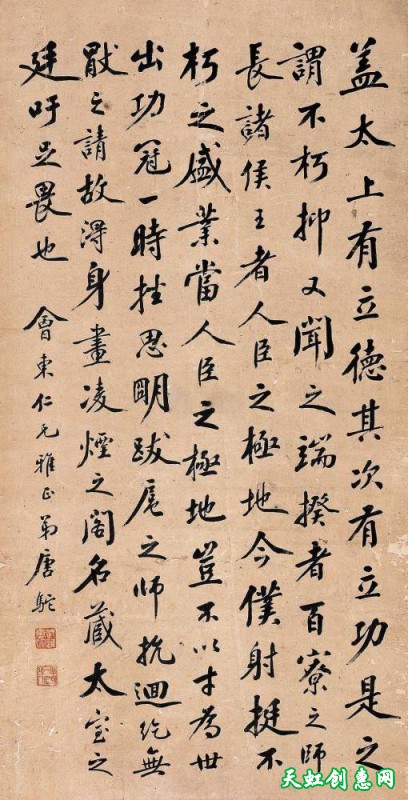 蓋太上有立德其次有立功是之
謂不朽抑又聞之端揆者百寮之師
長諸侯王者人臣之極地今僕射挺不
朽之盛業當人臣之極地豈不以才為世
出功冠一時挫思明跋扈之師抗迴紇無
猒之請故得身畫凌煙之閣名藏太室之
廷吁足畏也 會東仁兄雅正 弟唐駝
天虹创意网